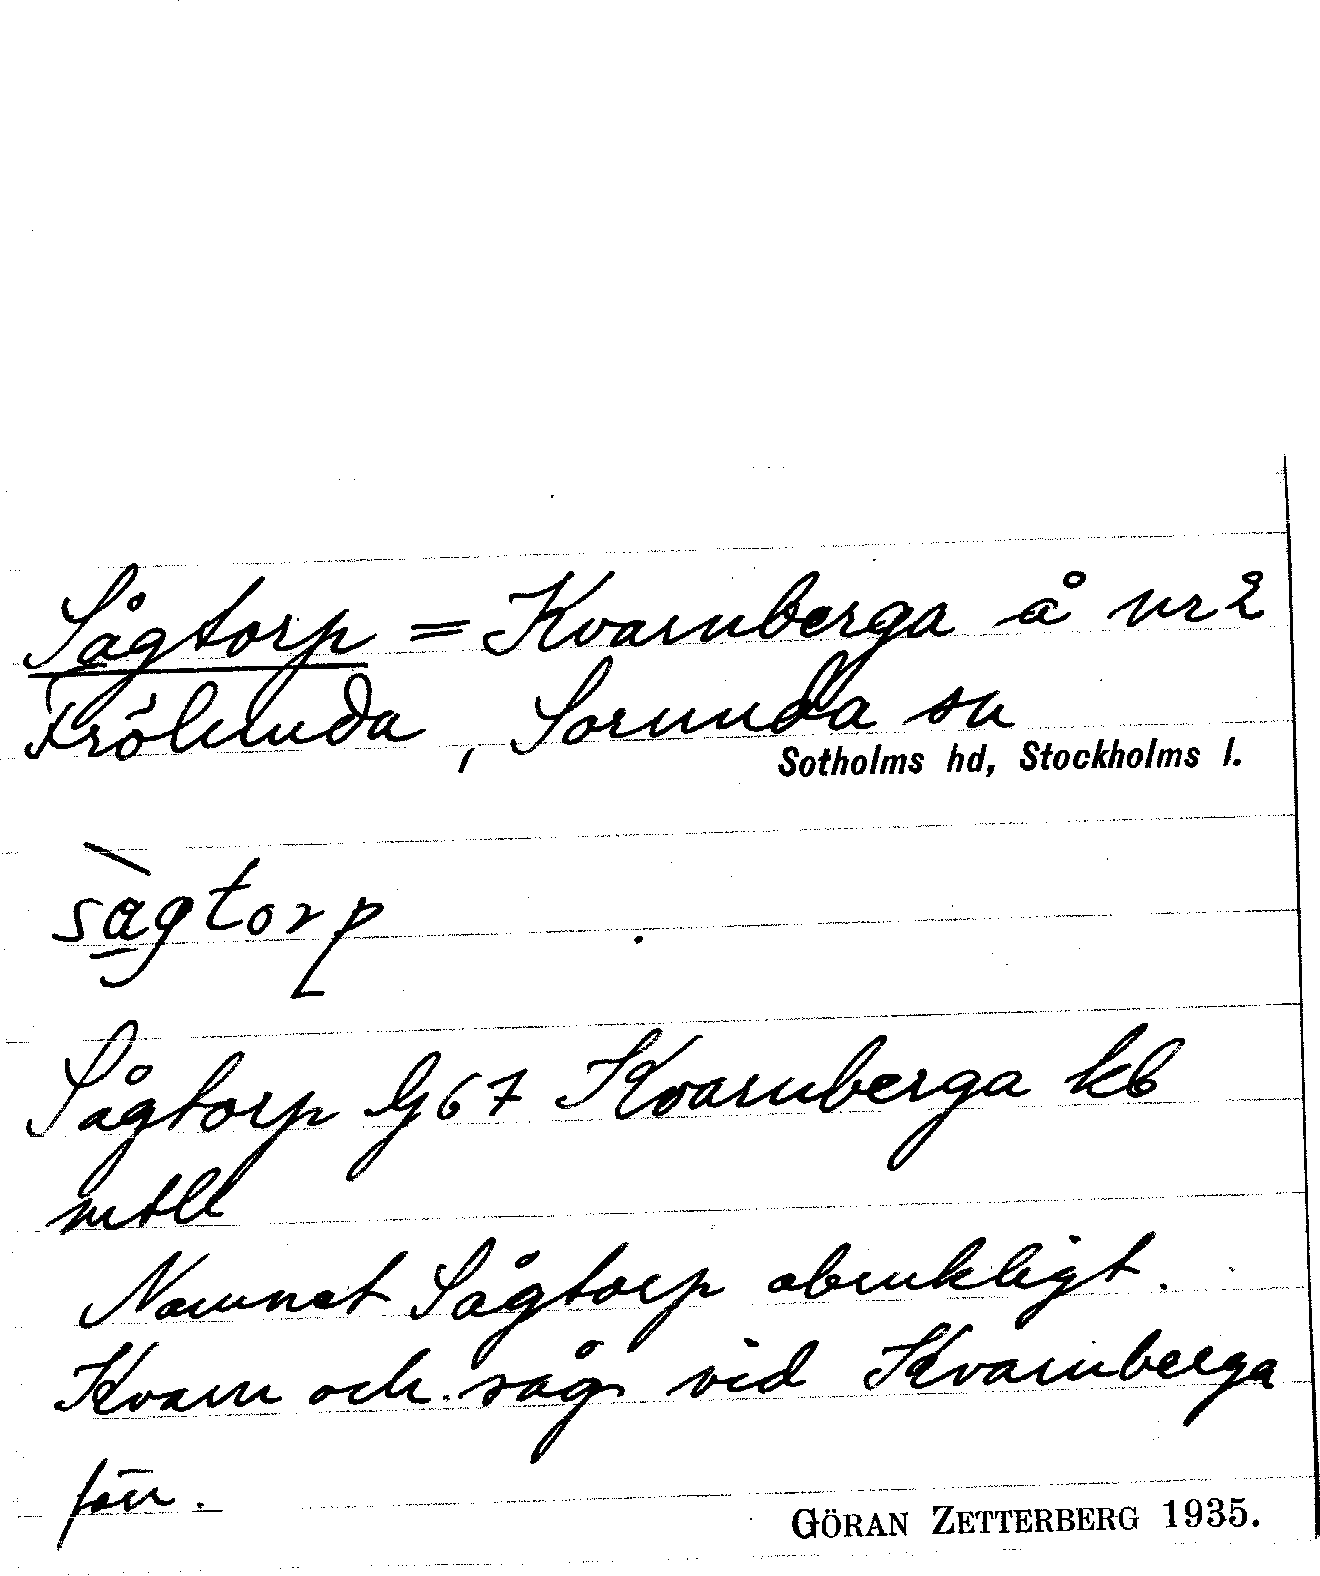 Sågtorp = Kvarnberga å nr 2
Frölunda, Sorunda sn
Sotholms hd, Stockholms l.
sàgtorp
Sågtorp Gj 67 Kvarnberga kb
mtll
Namnet Sågtorp obrukligt.
Kvarn och såg vid Kvarnberga
förr.
GÖRAN ZETTERBERG 1935.